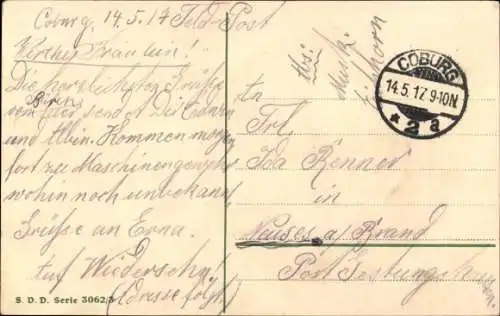 Coburg, 14.5.17 Feld-Post
Werthes Fräulein!
Die herzlichsten Grüße
von der sendet Ihnen
und Albin. Kommen morgen
fort zu Maschinengewehr
wohin noch unbekannt.
Grüße an Erna.
Auf Wiedersehn.
(Adresse folgt.)
S. D. D. Serie 3062/3
Abs:
Musk.
COBURG
14.5.17. 9-10N.
* 2 a
An
Frl.
Ida Renner
in
Nauses a/Brand
Post